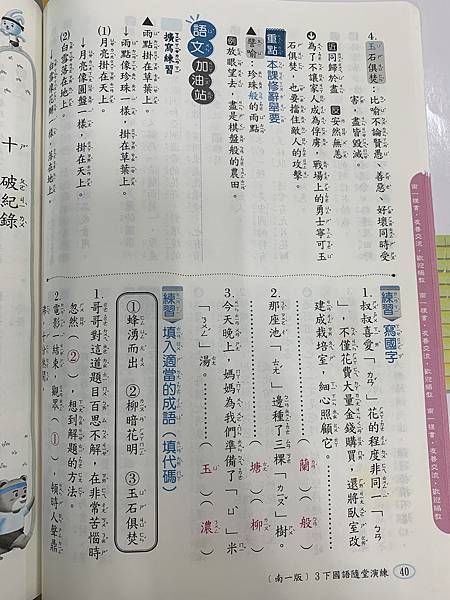 4. 玉石俱焚：比喻不論賢愚、善惡、好壞同時受
害，盡皆毀滅。
近 同歸於盡 反 安然無恙
為了不讓家人成為俘虜，戰場上的勇士寧可玉
石俱焚，也要擋住敵人的攻擊。
重點 本課修辭舉要
▲譬喻：珍珠般的雨點
例 放眼望去，盡是棋盤般的農田。
語文加油站
擴寫練習
▲雨點掛在草葉上。
→雨點像珍珠一樣，掛在草葉上。
(1) 月亮掛在天上。
→月亮像圓盤一樣，掛在天上。
(2) 白雪落在地上。
練習 寫國字
1. 叔叔喜愛「ㄌㄢˊ」花的程度非同一「ㄅㄢ
」，不僅花費大量金錢購買，還將臥室改
建成栽培室，細心照顧它。
（蘭）（般）
2. 那座池「ㄊㄤˊ」邊種了三棵「ㄌㄡˇ」樹。
（塘）（柳）
3. 今天晚上，媽媽為我們準備了「ㄩˋ」米
「ㄋㄨㄥˊ」湯。
（玉）（濃）
練習 填入適當的成語（填代碼）
①蜂湧而出 ②柳暗花明 ③玉石俱焚
1. 哥哥對這道題目百思不解，在非常苦惱時
忽然（②），想到解題的方法。
2. 電影一結束，觀眾（①），頓時人聲鼎
十 破紀錄
南一樣書，友善交流，歡迎編教
（南一版）3下國語隨堂演練
40